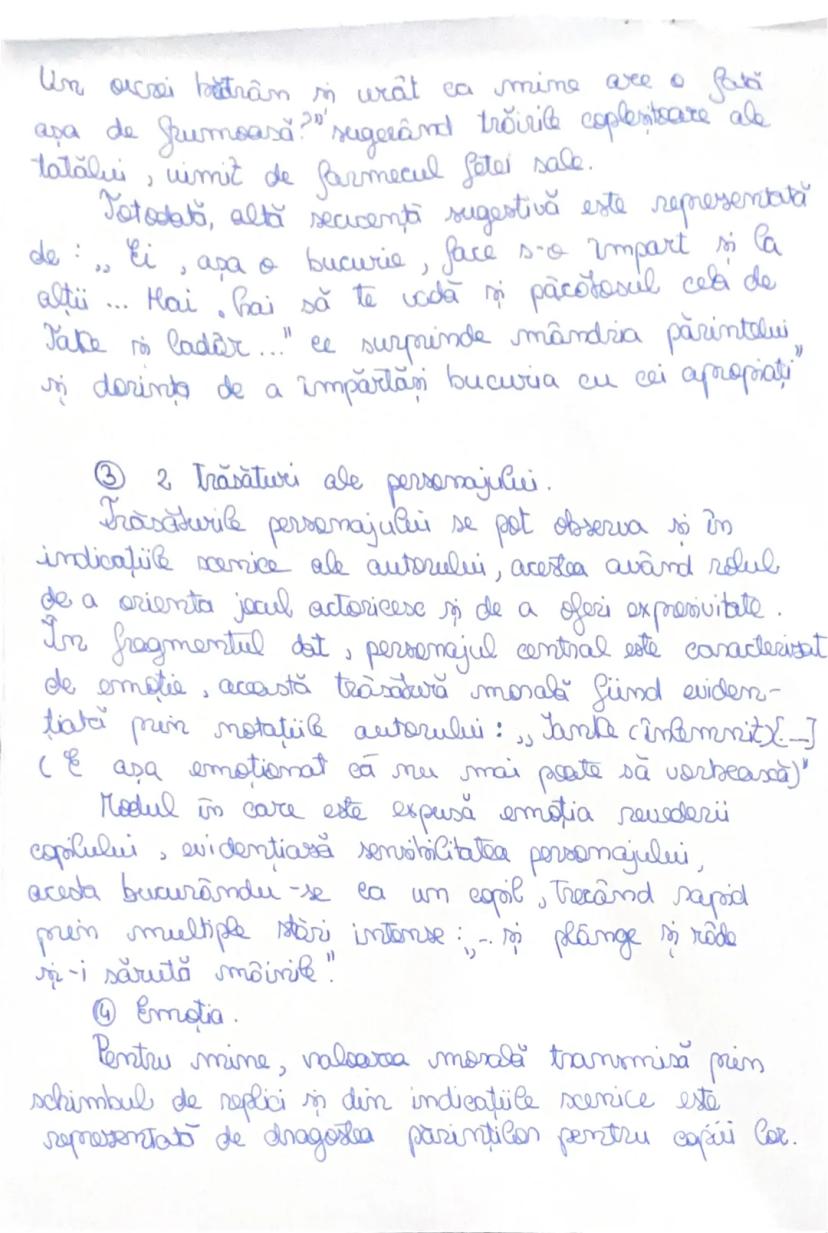 Un ovrei bătrân și urât ca mine are o fată
așa de frumoasă?" sugerând trăirile copleșitoare ale
tatălui, uimit de farmecul fetei sale.
Totodată, altă secvență sugestivă este reprezentată
de: „Ei, așa o bucurie, face s-o împart și la
alții ... Hai, hai să te vadă și păcătosul cela de
Take și ladăr..." ce surprinde mândria părintelui
și dorința de a împărtăși bucuria cu cei apropiați"
③ 2 trăsături ale personajului.
Trăsăturile personajului se pot observa și în
indicațiile scenice ale autorului, acestea având rolul
de a orienta jocul actoricesc și de a oferi expresivitate.
În fragmentul dat, personajul central este caracterizat
de emoție, această trăsătură morală fiind eviden-
țiată prin notațiile autorului: „Ianke (înlemnit)[...]
(E așa emoționat că nu mai poate să vorbească)"
Modul în care este expusă emoția revederii
copilului, evidențiază sensibilitatea personajului,
acesta bucurându-se ca un copil, trecând rapid
prin multiple stări intense: „... și plânge și râde
și-i sărută mâinile".
④ Emoția.
Pentru mine, valoarea morală transmisă prin
schimbul de replici și din indicațiile scenice este
reprezentată de dragostea părinților pentru copiii lor.